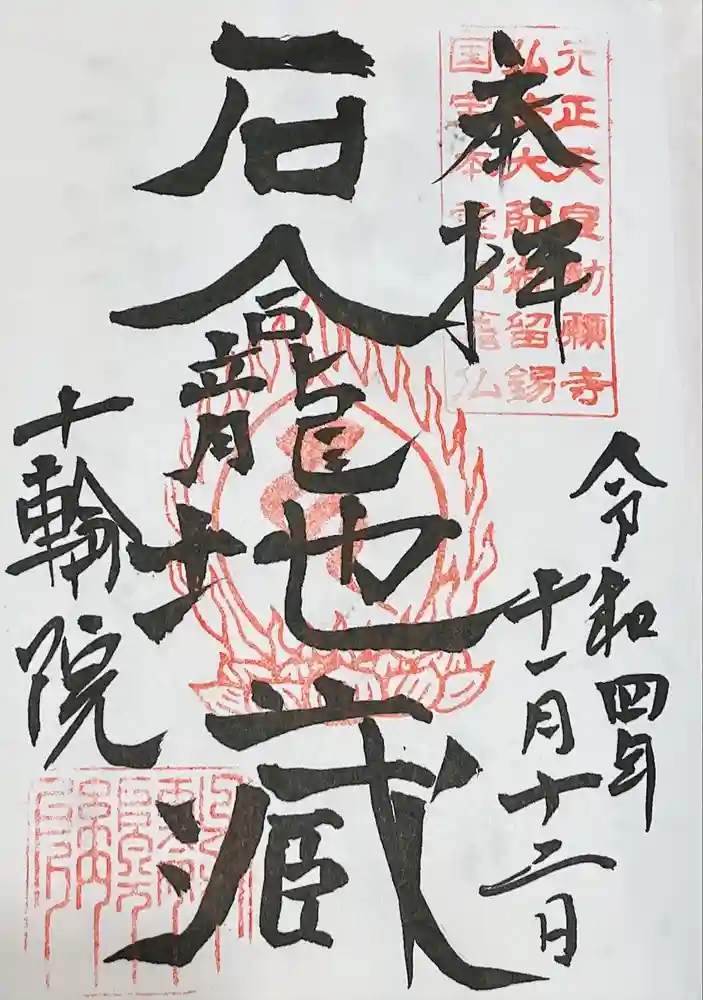 元正天皇勅願寺
弘法大師留錫
国宝本堂石龕仏
奉拝
令和四年
十一月十二日
石龕地蔵
十輪院